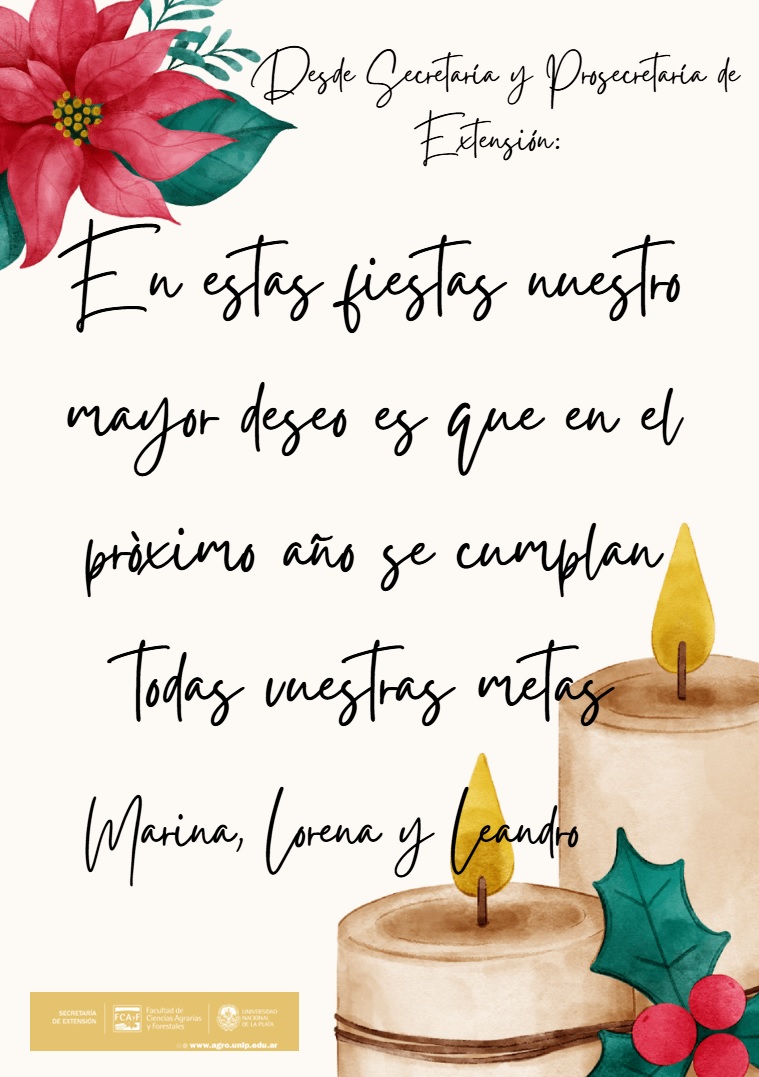 Desde Secretaría y Prosecretaría de
Extensión:
En estas fiestas nuestro
mayor deseo es que en el
pròximo año se cumplan
todas vuestras metas
Marina, Lorena y Leandro
SECRETARÍA
DE EXTENSIÓN
FCAyF
Facultad de
Ciencias Agrarias
y Forestales
UNIVERSIDAD
NACIONAL
DE LA PLATA
www.agro.unlp.edu.ar